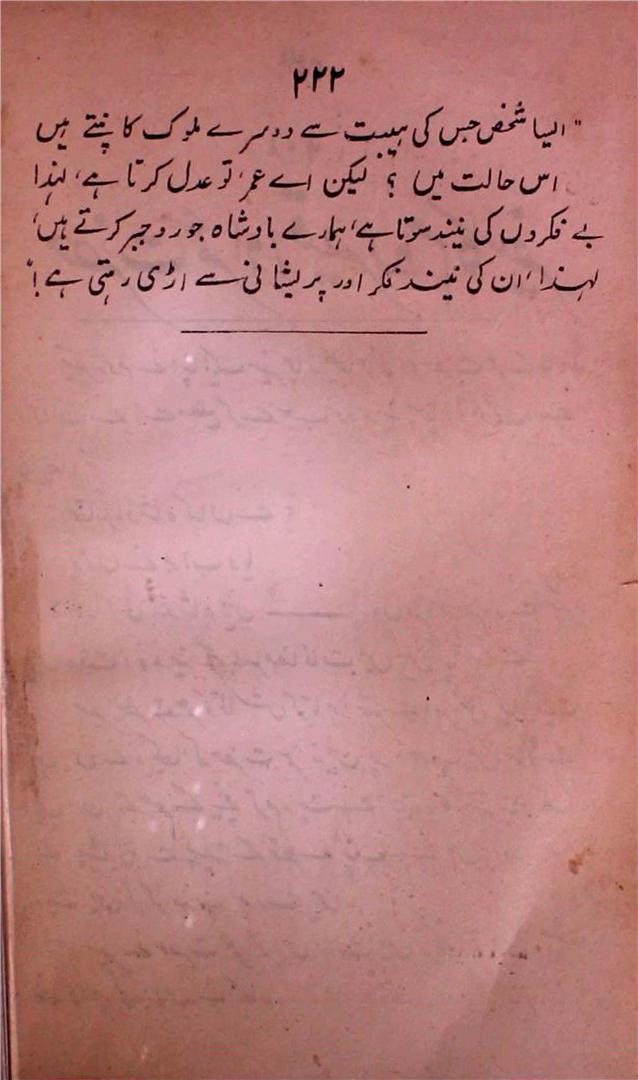 ۲۲۲
"ایسا شخص جس کی ہیبت سے دوسرے ملوک کانپتے ہیں
اس حالت میں؟ لیکن اے عمرؓ تو عدل کرتا ہے، لہٰذا
بے فکروں کی نیند سوتا ہے، ہمارے بادشاہ جور و جبر کرتے ہیں،
لہٰذا، ان کی نیند فکر اور پریشانی سے اڑی رہتی ہے!"